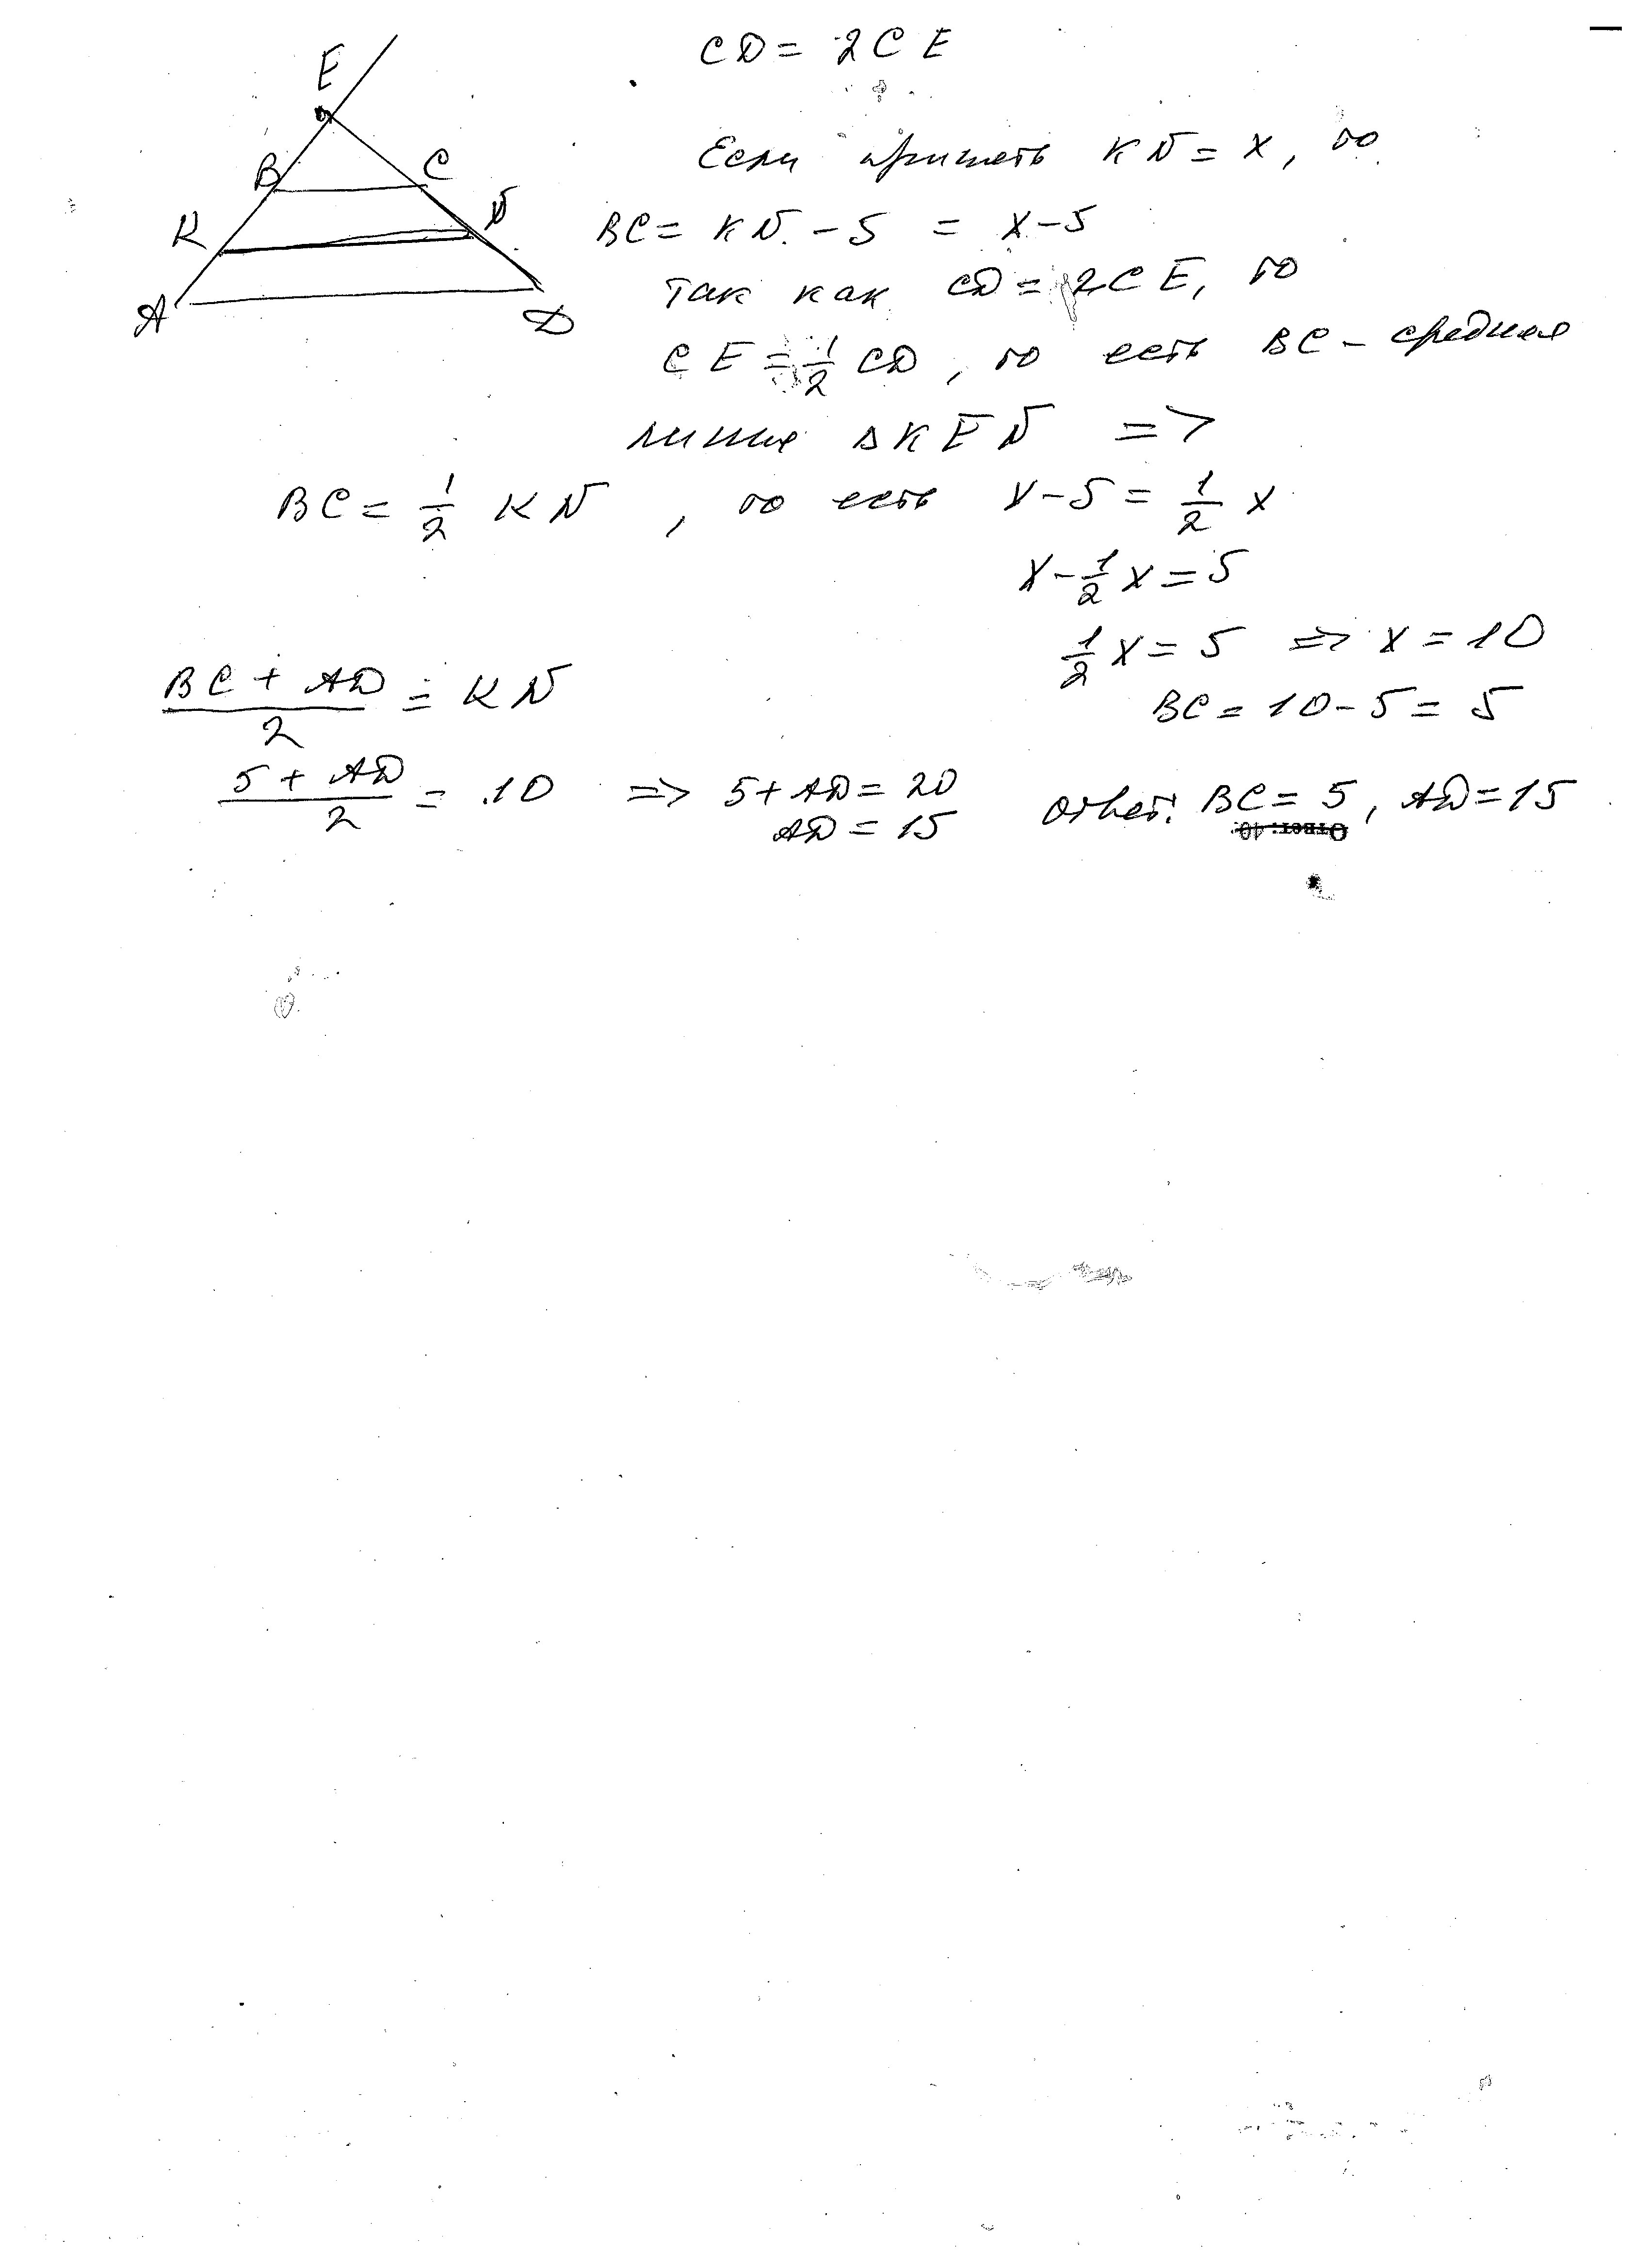 CD = 2CE
E
B
C
K
N
A
D
Если принять KN = x, то
BC = KN - 5 = x - 5
Так как CD = 2CE, то
CE = 1/2 CD, то есть BC - средняя
линия ΔKEN =>
BC = 1/2 KN, то есть x - 5 = 1/2 x
x - 1/2 x = 5
1/2 x = 5 => x = 10
BC = 10 - 5 = 5
(BC + AD)/2 = KN
(5 + AD)/2 = 10 => 5 + AD = 20
AD = 15
Ответ: BC = 5, AD = 15
Ответ: 40.